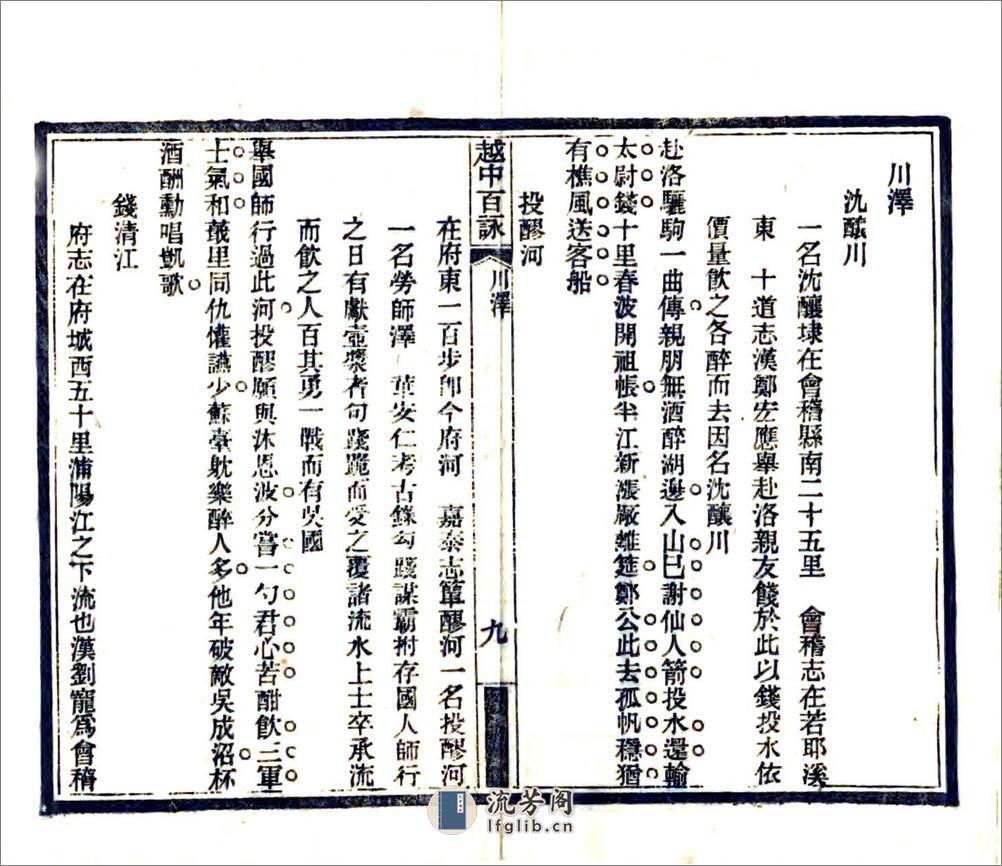 川澤
沈釀川
一名沈釀埭在會稽縣南二十五里　會稽志在若耶溪
東　十道志漢鄭宏應舉赴洛親友餞於此以錢投水依
價量飲之各醉而去因名沈釀川
赴洛驪駒一曲傳親朋無酒醉湖邊入山已謝仙人箭投水還輸
太尉錢十里春波開祖帳半江新漲厰離筵鄭公此去孤帆穩猶
有樵風送客船
投醪河
在府東一百步卽今府河　嘉泰志簞醪河一名投醪河
一名勞師澤　華安仁考古錄勾踐謀霸拊存國人師行
之日有獻壺漿者句踐跪而受之覆諸流水上士卒承流
而飲之人百其勇一戰而有吳國
舉國師行過此河投醪願與沐恩波分嘗一勺君心苦酣飲三軍
士氣和蕺里同仇懽讌少蘇臺躭樂醉人多他年破敵吳成沼杯
酒酬勳唱凱歌
錢清江
府志在府城西五十里浦陽江之下流也漢劉寵爲會稽
越中百詠
川澤
九
流芳阁
lfglib.cn